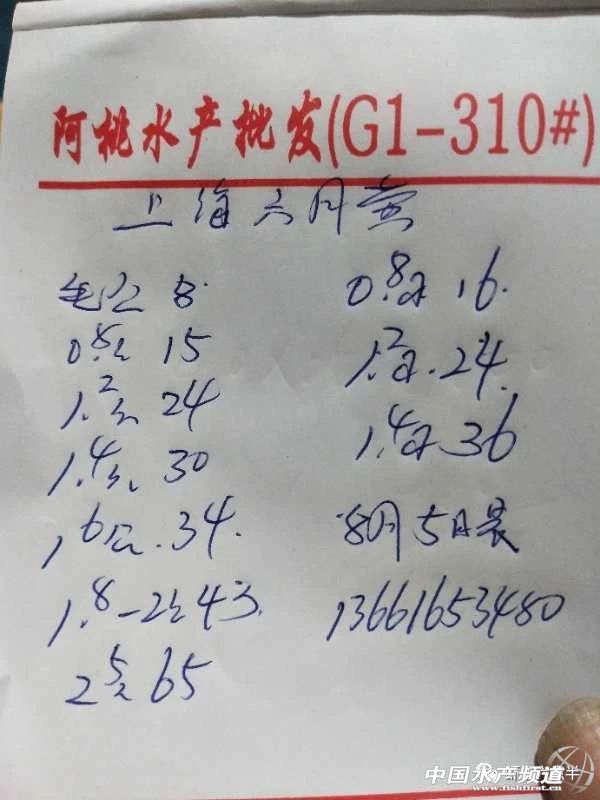 阿桃水产批发(G1-310#)
上海六月黄
毛公 8.
0.8母 16.
0.8公 15
1.2母.24.
1.2公 24
1.4母.36
1.4公 30
1.6公.34.
8月5日晨
1.8-2公43.
13661653480
2.5公 65
中国水产频道
www.fishfirst.cn